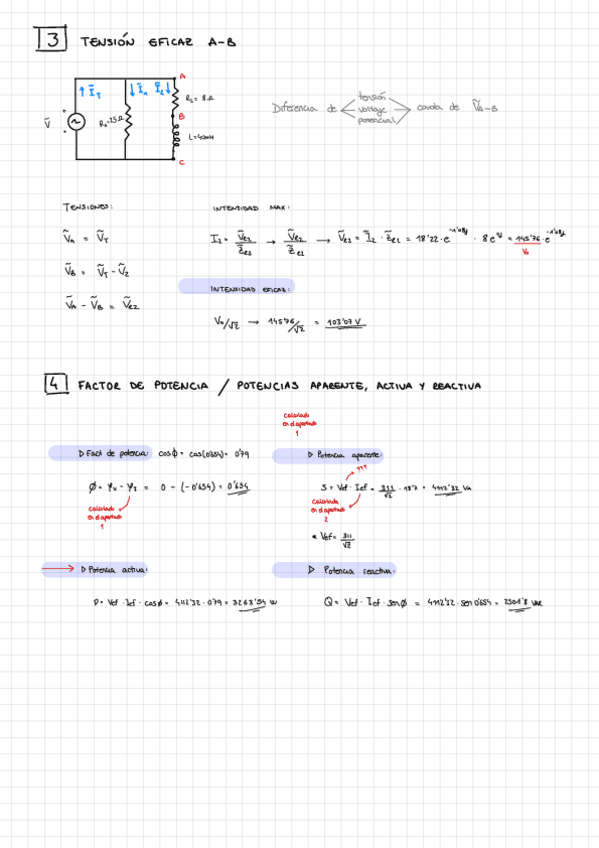 3 TENSIÓN EFICAZ A-B
A
R₂ = 8 Ω
B
L = 40mH
C
R₁ = 25 Ω
Diferencia de
tensión
voltaje
potencial
caída de ṼA-B
TENSIONES:
ṼA = ṼT
ṼB = ṼT - Ṽ2
ṼA - ṼB = ṼR2
INTENSIDAD MAX:
INTENSIDAD EFICAZ:
V₀/√2 → 145'76/√2 = 103'07 V
4 FACTOR DE POTENCIA / POTENCIAS APARENTE, ACTIVA Y REACTIVA
calculado
en el apartado
1
▷ Fact de potencia: cosϕ = cos(0'654) = 0'79
ϕ = φV - φI = 0 - (-0'654) = 0'654
calculado
en el apartado
1
▷ Potencia aparente:
???
S = Vef · Ief = 311/√2 · 18'7 = 4112'32 VA
calculado
en el apartado
2
• Vef = 311/√2
▷ Potencia activa:
P = Vef · Ief · cosϕ = 4112'32 · 0'79 = 3263'54 W
▷ Potencia reactiva:
Q = Vef · Ief · senϕ = 4112'32 · sen 0'654 = 2501'8 VAR